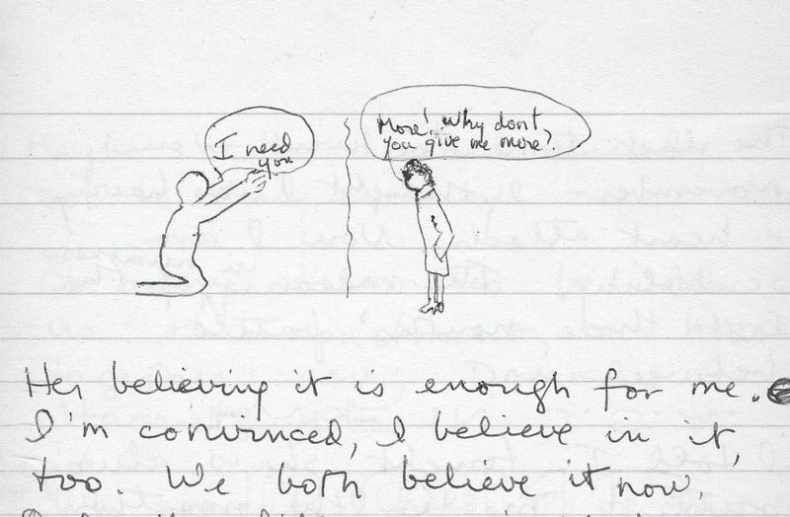 I need
you
More! Why don't
you give me more?
Her believing it is enough for me.
I'm convinced, I believe in it,
too. We both believe it now.